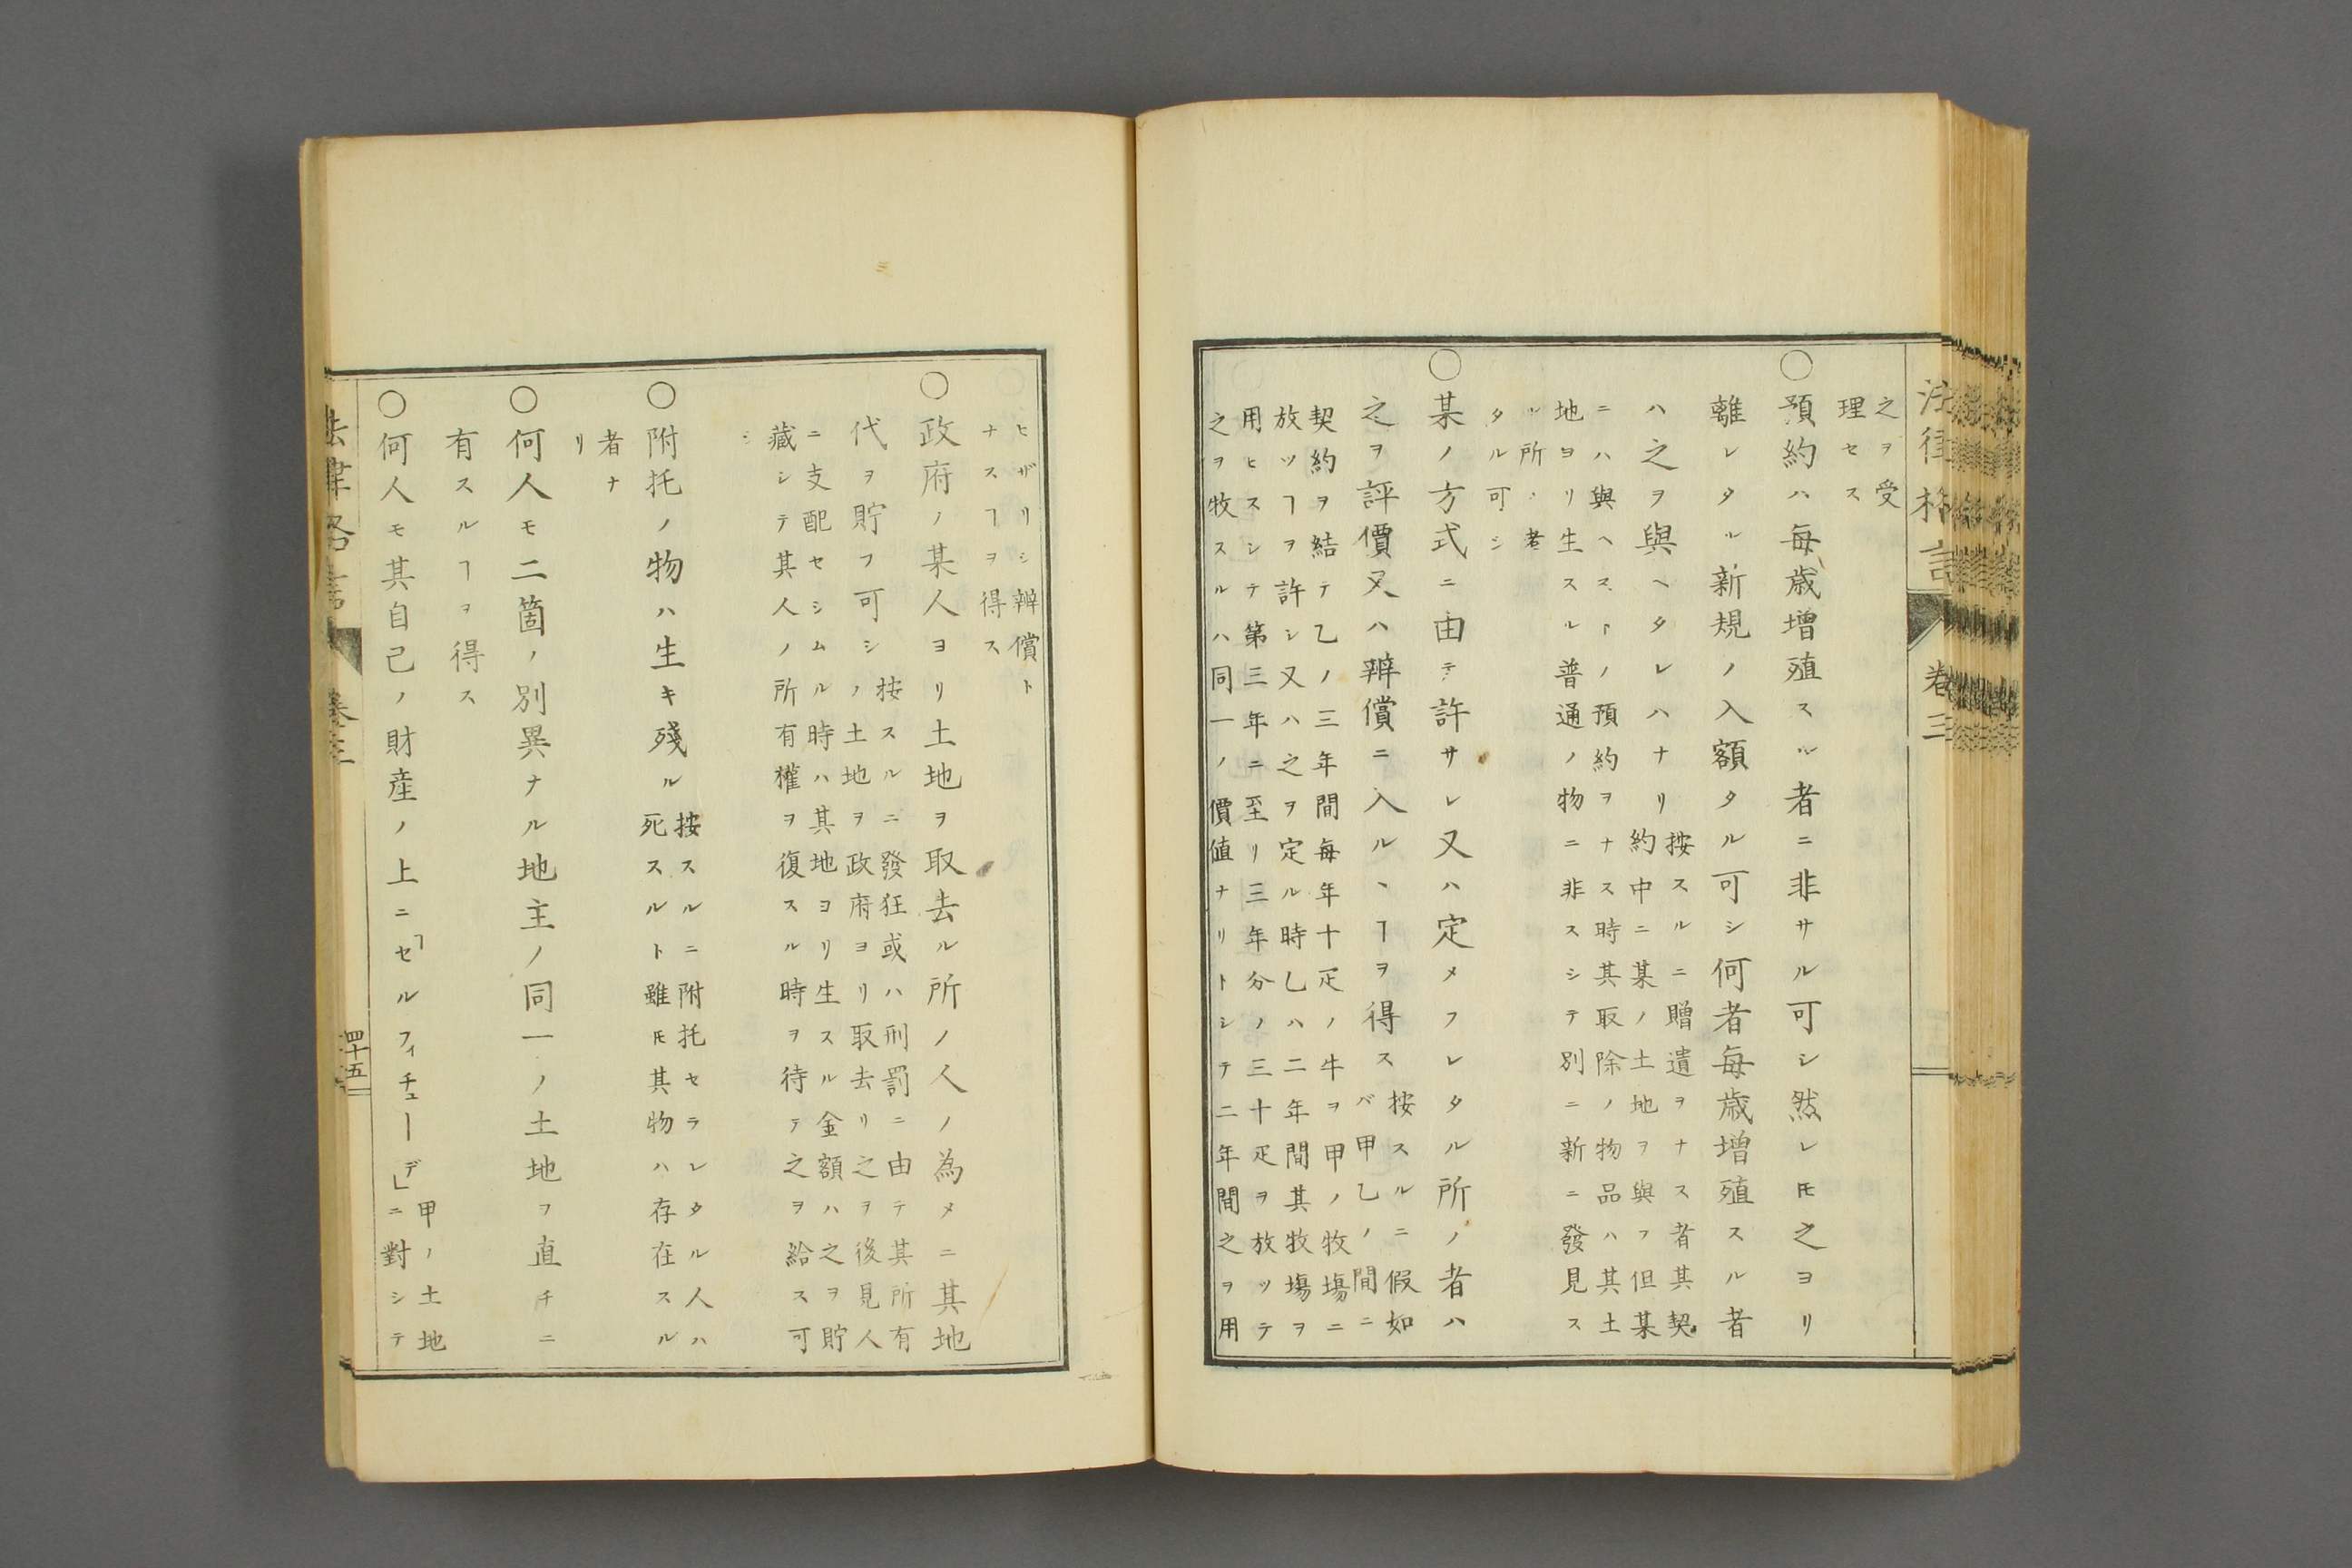 法律格言　卷三
之ヲ受
理セス
○預約ハ每歳増殖スル者ニ非サル可シ然レ𪜈之ヨリ
離レタル新規ノ入額タル可シ何者每歳増殖スル者
ハ之ヲ與ヘタレハナリ
按スルニ贈遺ヲナス者其契
約中ニ某ノ土地ヲ與フ但某
ニハ與ヘストノ預約ヲナス時其取除ノ物品ハ其土
地ヨリ生スル普通ノ物ニ非スシテ別ニ新ニ發見ス
ル所ノ者
タル可シ
○某ノ方式ニ由テ許サレ又ハ定メフレタル所ノ者ハ
之ヲ評價又ハ辨償ニ入ルヽヿヲ得ス
按スルニ假如
バ甲乙ノ間ニ
契約ヲ結テ乙ノ三年間每年十疋ノ牛ヲ甲ノ牧塲ニ
放ツヿヲ許シ又ハ之ヲ定ル時乙ハ二年間其牧塲ヲ
用ヒスシテ第三年ニ至リ三年分ノ三十疋ヲ放ツテ
之ヲ牧スルハ同一ノ價値ナリトシテ二年間之ヲ用
ヒザリシ辨償ト
ナスヿヲ得ス
○政府ノ某人ヨリ土地ヲ取去ル所ノ人ノ為メニ其地
代ヲ貯フ可シ
按スルニ發狂或ハ刑罰ニ由テ其所有
ノ土地ヲ政府ヨリ取去リ之ヲ後見人
ニ支配セシムル時ハ其地ヨリ生スル金額ハ之ヲ貯
藏シテ其人ノ所有權ヲ復スル時ヲ待テ之ヲ給ス可
シ
○附托ノ物ハ生キ殘ル
按スルニ附托セラレタル人ハ
死スルト雖𪜈其物ハ存在スル
者ナ
リ
○何人モ二箇ノ別異ナル地主ノ同一ノ土地ヲ直チニ
有スルヿヲ得ス
○何人モ其自己ノ財産ノ上ニ「セルフィチューデ」
甲ノ土地
ニ對シテ
法律格言　卷三　四十五